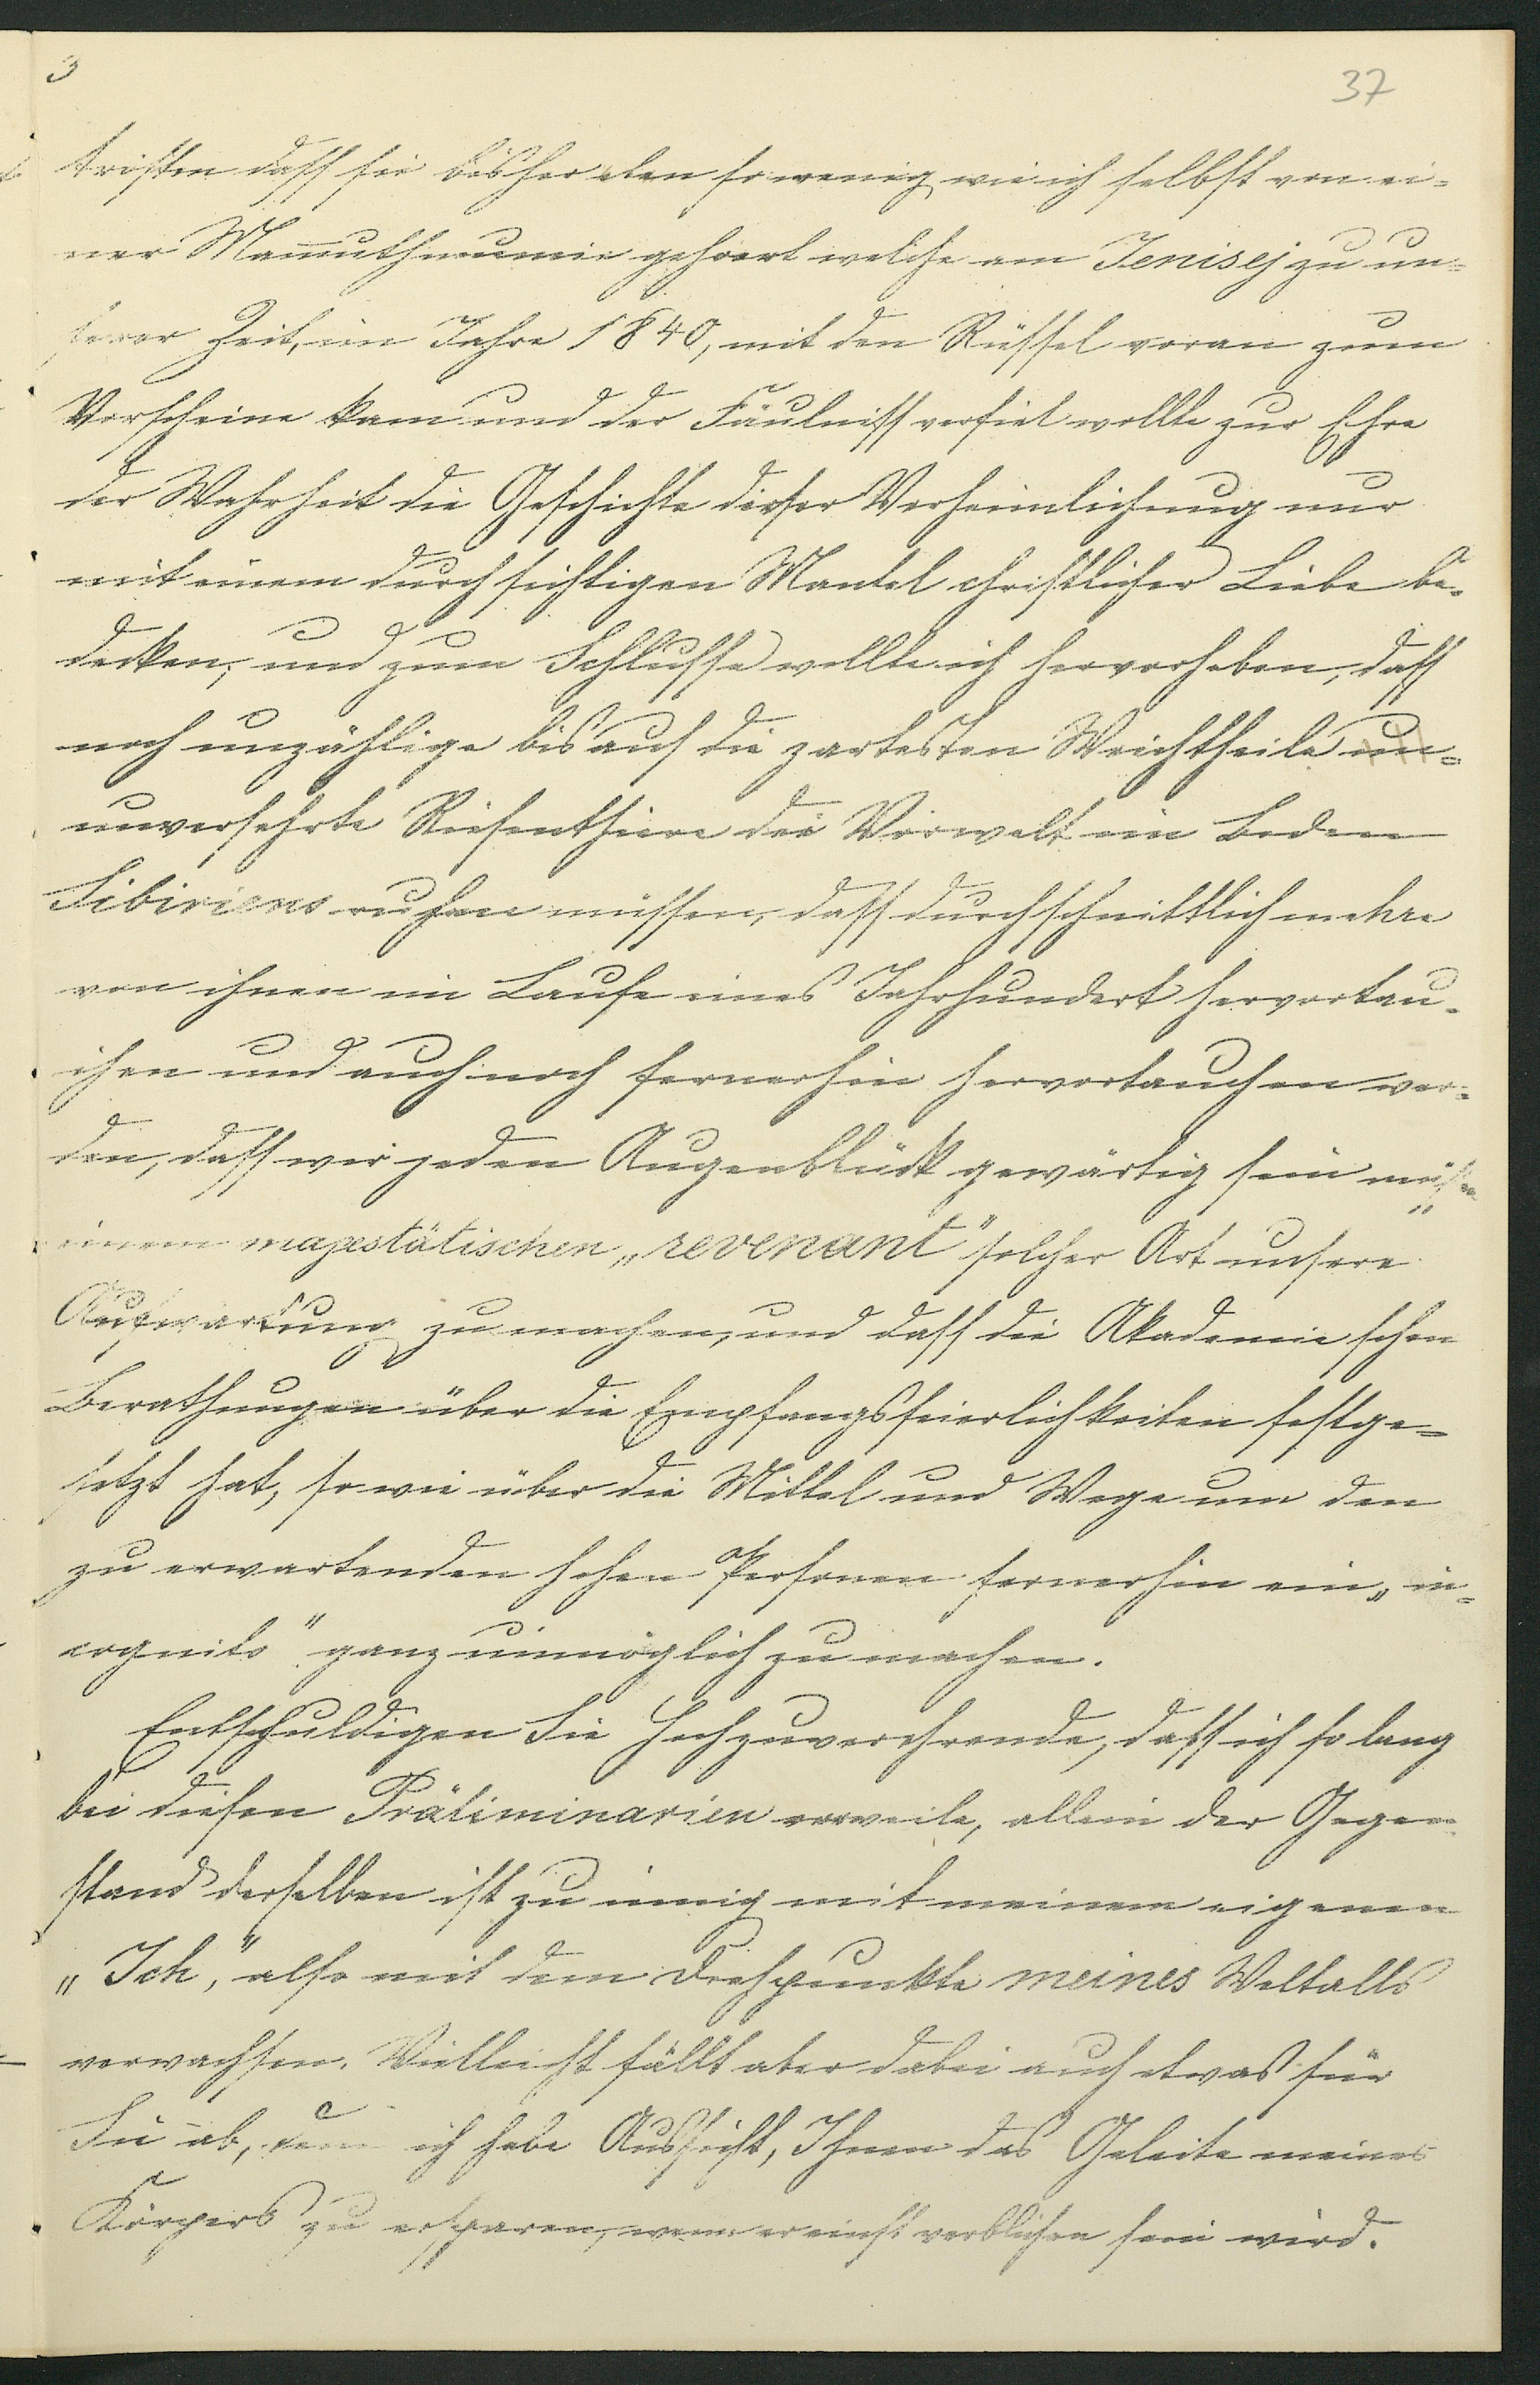 3
37
trösten dass sie bisher eben so wenig wie ich selbst von ei-
ner Mam̅uthmumie gehoert welche am Jenisej zu un-
serer Zeit, im Jahre 1840, mit den Rüssel voran zum
Vorscheine kam und der Fäulniss verfiel wollte zur Ehre
der Wahrheit die Geschichte dieser Verheimlichung nur
mit einem durchsichtigen Mantel christlicher Liebe be-
decken, und zum Schlusse wollte ich hervorheben, dass
noch unzählige bis auf die zartesten Weichtheile un-
unversehrte Riesenthiere der Vorwelt im Boden
Sibiriens ruhen müssen, dass durchschnittlich mehre
von ihnen im Laufe eines Jahrhundert hervortau-
chen und auch noch fernerhin hervortauchen wer-
den, dass wir jeden Augenblick gewärtig sein müssen
einem majestätischen „revenant" solcher Art unsere
Aufwartung zu machen, und dass die Akademie schon
Berathungen über die Empfangsfeierlichkeiten festge-
setzt hat, so wie über die Mittel und Wege um den
zu erwartenden hohen Personen fernerhin ein „in-
cognito" ganz unmöglich zu machen.
Entschuldigen Sie Hochzuverehrende, dass ich so lang
bei diesen Präliminarien verweile, allein der Gegen
stand derselben ist zu innig mit meinem eigenen
„Ich", also mit dem Drehpunkte meines Weltalls
verwachsen. Vielleicht fällt aber dabei auch etwas für
Sie ab, denn ich habe Aussicht, Ihnen das Geleite meines
Körpers zu ersparen, wenn er einst verblichen sein wird.